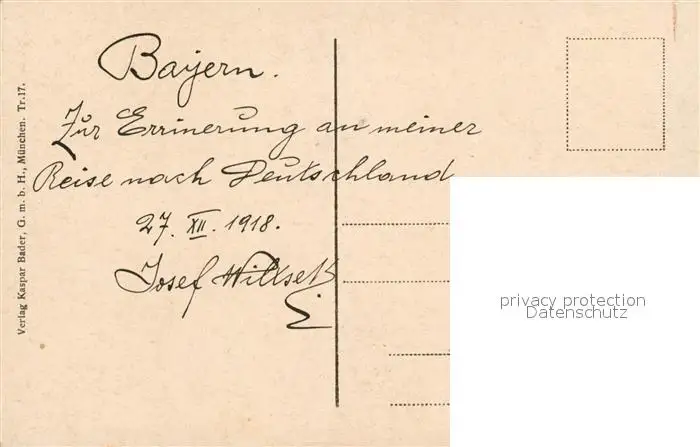 Bayern.
Zur Errinerung an meiner
Reise nach Deutschland
27. XII. 1918.
Josef
Verlag Kaspar Bader, G. m. b. H., München. Tr.17.
privacy protection
Datenschutz